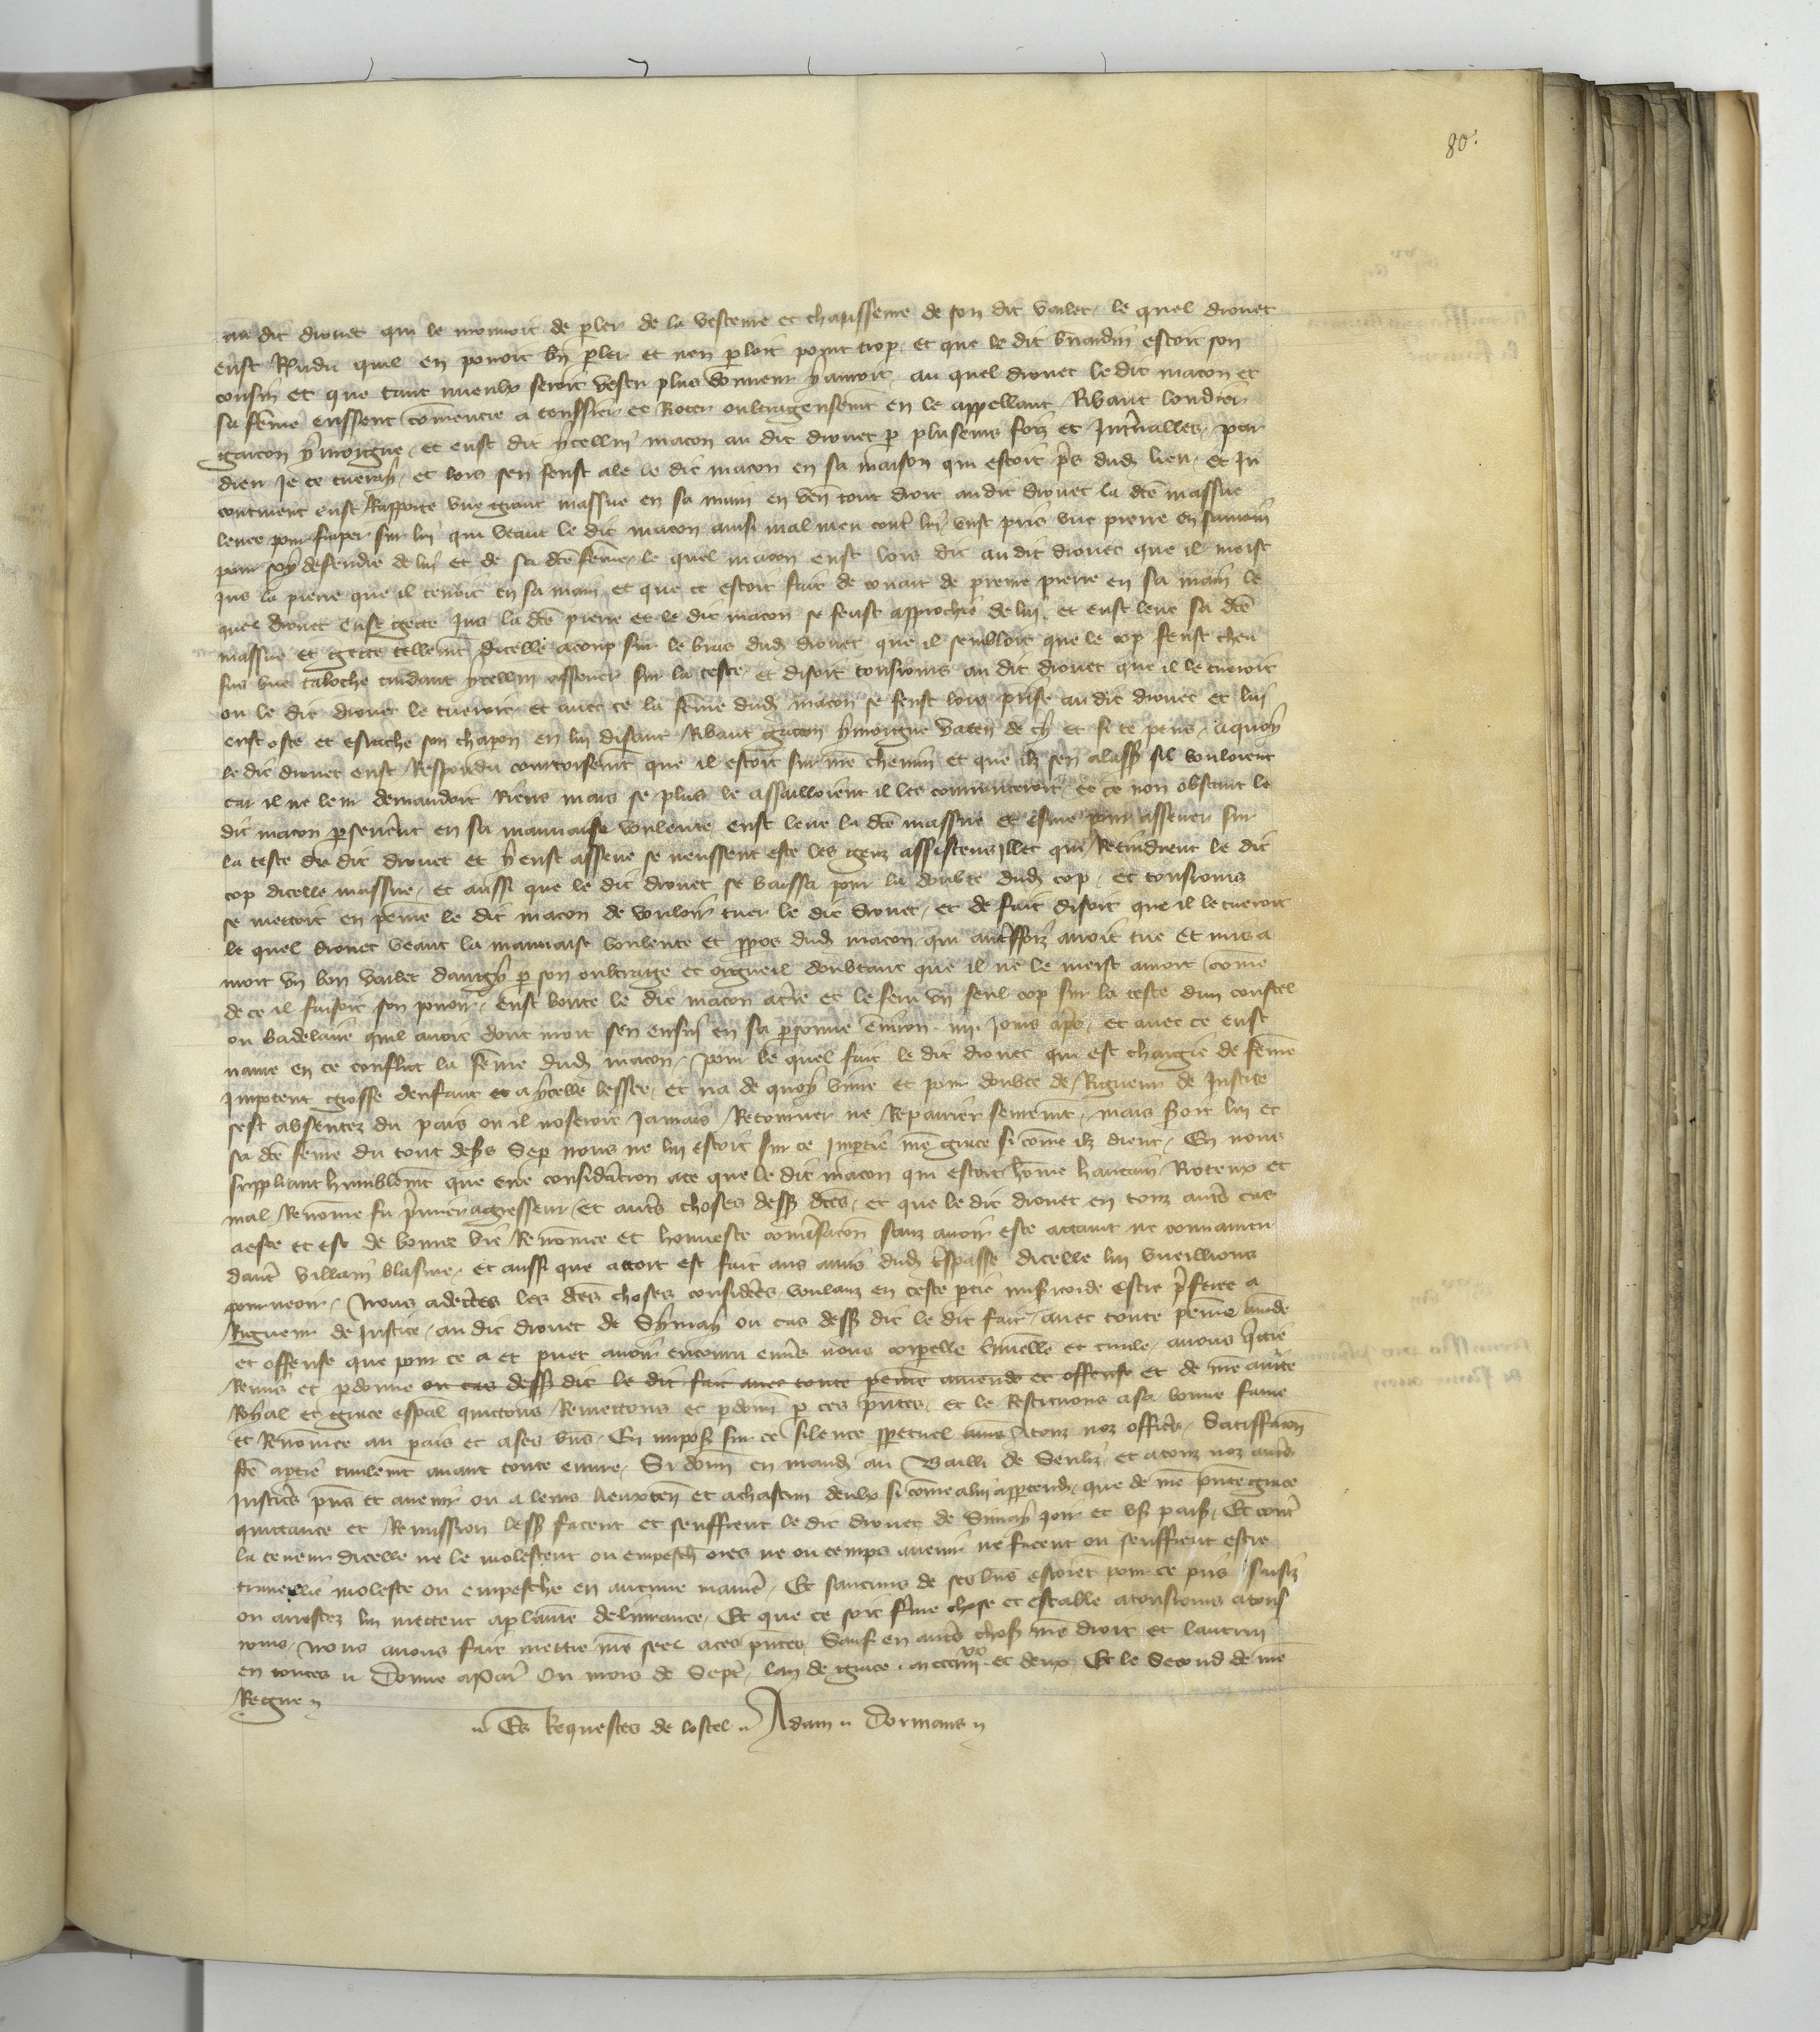 80.
au dit drouet qui le mouuoit de pler de la vesteure et chausseure de son dit varlet, le quel drouet
eust Rñdu quil en pouoit bn̄ pler et nen ploit point trop, et que le dit bnardin estoit son
cousin et que tant mieulx seroit vestu plus donneur y auroit, au quel drouet le dit macon et
sa feme eussent comencie a tenssier et Roter oultrageusemt en le appellant Ribaut loudier
garcon yuroigne, et eust dit ycellui macon au dit drouet p pluseurs foiz et Interualles, par
dieu Je te tueray, et lors sen feust ale le dit macon en sa maison qui estoit pres dud lieu, et In
continent eust Rapporte vne grant massue en sa main en ven tout droit au dit drouet la dce massue
leuee pour fraper sur lui qui veant le dit macon ainsi mal meu contre lui eust pris vne pierre en sa main
pour soy defendre de lui et de sa dce feme, le quel macon eust lors dit au dit drouet que il meist
Jus la pierre que il tenoit en sa main et que ce estoit fait de couart de prenre pierre en sa main le
quel drouet eust gette Jus la dce pierre et le dit macon se feust approchie de lui, et eust leue sa dce
massue et gette tellemt dicelle acoup sur le bras dud drouet que il sembloit que le cop feust cheu
sus vne taloche cuidant ycellui assener sur la teste, et disoit tousiours au dit drouet que il le tueroit
ou le dit drouet le tueroit, et auec ce la feme dud macon se feust lors prise au dit drouet et lui
eust oste et esrache son chapon en lui disant Ribaut garcon yuroigne vaten de cy et si te pens, a quoy
le dit drouet eust Respondu courtoisemt que il estoit sur nre chemin et que ilz sen alassent sil vouloient
car il ne leur demandoit Riens mais se plus le assailloient il les courouceroit, et ce non obstant le
dit macon perseuerant en sa mauuaise voulente eust leue la dce massue et esme pour assener sur
la teste du dit drouet et y eust assene se neussent este les genz assistens illec qui Retindrent le dit
cop dicelle massue, et aussi que le dit drouet se baissa pour la doubte dud cop, et tousiours
se mettoit en peine le dit macon de vouloir tuer le dit drouet, et de fait disoit que il le tueroit
le quel drouet veant la mauuaise voulente et ppos dud macon qui autreffoiz auoit tue et mis a
mort vn bon varlet dangy p son oultrage et orgueil doubtant que il ne le meist amort come
de ce il faisoit son pouoir, eust boute le dit macon atre et le feru vn seul cop sur la teste dun coustel
ou badelaire quil auoit dont mort sen ensui en sa persone enuiron .iiii. Jours apres, et auec ce eust
naure en ce conflict la feme dud macon, pour le quel fait le dit drouet qui est chargie de feme
Impotent grosse denfant et a ycelle lessee, et na de quoy viure et pour doubte de Rigueur de Justice
sest absentez du pais ou il noseroit Jamais Retourner ne Repairier seuremt, mais seroit lui et
sa dce feme du tout desers Se p nous ne lui estoit sur ce Imptie nre grace si come ilz dient, En nous
suppliant humblemt que eue consideracion ace que le dit macon qui estoit home hautain Rioteux et
mal Renome fu premier agresseur, et autres choses dess dces, et que le dit drouet en touz autres cas
aeste et est de bonne vie Renomee et honneste conuersacion sanz auoir este attaint ne conuaincu
dautre villain blasme, et aussi que attort est fait aus amis dud trespasse dicelle lui vueillions
pourueoir, Nous adcertes les dces choses considerees voulanz en ceste ptie misericorde estre preferee a
Rigueur de Justice, au dit drouet de Symay ou cas dess dit le dit fait, auec toute peine amde
et offense que pour ce a et puet auoir encouru enuers nous corporelle criminelle et ciuile, auons quictie
Remis et pdonne ou cas dess dit le dit fait auec toute peine amende et offense et de nre aucte
Royal et grace especal quittons Remettons et pdonn p ces pntes, et le Restituons a sa bonne fame
et Renomee au pais et a ses bns, En imposant sur ce silence perpetuel a touz noz officrs, Satisffacon
fce aptie ciuilemt auant toute euure, Si donn en mand au Bailli de Senliz et atouz noz autres
Justicrs pns et auenir ou a leurs lieuxten et achascun deulx si come a lui appartendra, que de nre pnte grace
quittance et Remission less facent et seuffrent le dit drouet de Simay Joir et vser paisiblement, Et contre
la teneur dicelle ne le molestent ou empeschent ores ne ou temps auenir ne facent ou seuffrent estre
trauaillie moleste ou empesche en aucune maniere, Et saucuns de ses bns estoient pour ce pris saisiz
ou arrestez lui mettent a plaine deliurance, Et que ce soit ferme chose et estable atousiours atous
iours, nous auons fait mettre nre seel aces pntes, Sauf en autres choses nre droit et lautruy
en toutes. Donne a Paris Ou mois de Septembre, lan de grace .mccciiiixx. et deux. Et le Second de nre
Regne
Es Requestes de lostel. Adam. Dormans